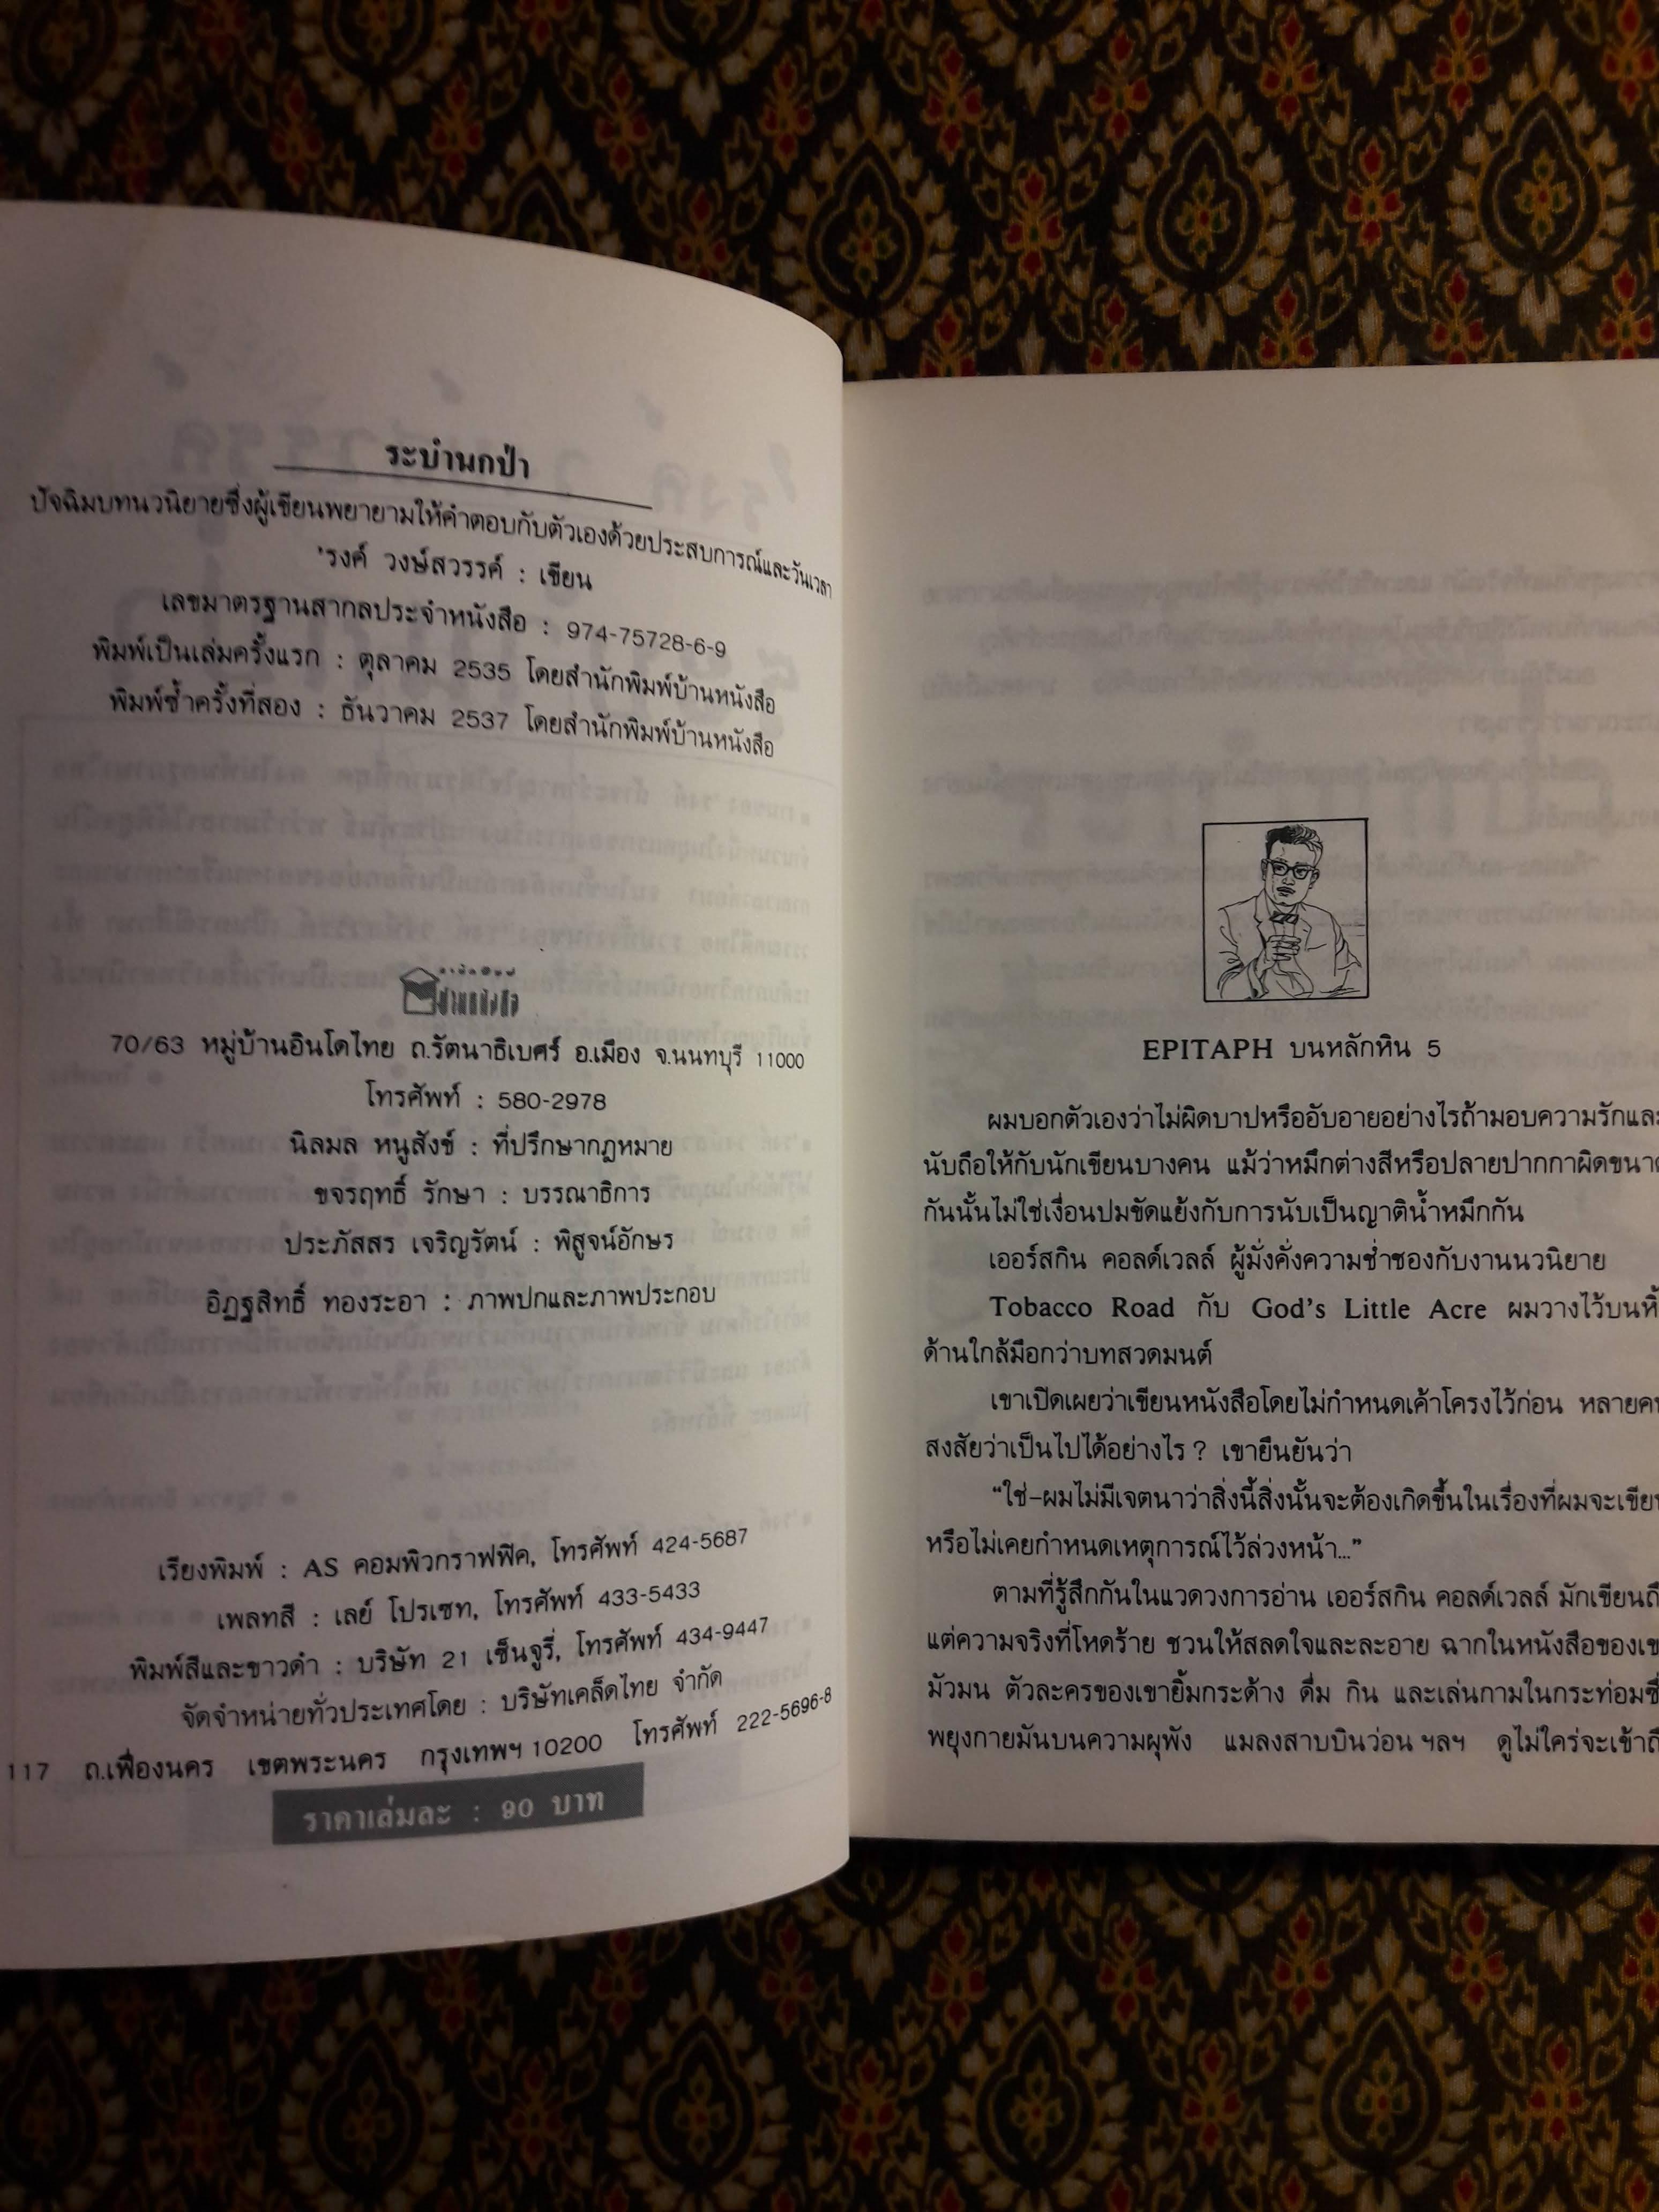 ระบำนกป่า
ปัจฉิมบทนวนิยายซึ่งผู้เขียนพยายามให้คำตอบกับตัวเองด้วยประสบการณ์และวันเวลา
'รงค์ วงษ์สวรรค์ : เขียน
เลขมาตรฐานสากลประจำหนังสือ : 974-75728-6-9
พิมพ์เป็นเล่มครั้งแรก : ตุลาคม 2535 โดยสำนักพิมพ์บ้านหนังสือ
พิมพ์ซ้ำครั้งที่สอง : ธันวาคม 2537 โดยสำนักพิมพ์บ้านหนังสือ
สำนักพิมพ์
บ้านหนังสือ
70/63 หมู่บ้านอินโดไทย ถ.รัตนาธิเบศร์ อ.เมือง จ.นนทบุรี 11000
โทรศัพท์ : 580-2978
นิลมล หนูสังข์ : ที่ปรึกษากฎหมาย
ขจรฤทธิ์ รักษา : บรรณาธิการ
ประภัสสร เจริญรัตน์ : พิสูจน์อักษร
อิฏฐสิทธิ์ ทองระอา : ภาพปกและภาพประกอบ
เรียงพิมพ์ : AS คอมพิวกราฟฟิค, โทรศัพท์ 424-5687
เพลทสี : เลย์ โปรเซท, โทรศัพท์ 433-5433
พิมพ์สีและขาวดำ : บริษัท 21 เซ็นจูรี่, โทรศัพท์ 434-9447
จัดจำหน่ายทั่วประเทศโดย : บริษัทเคล็ดไทย จำกัด
117 ถ.เฟื่องนคร เขตพระนคร กรุงเทพฯ 10200 โทรศัพท์ 222-5696-8
ราคาเล่มละ : 90 บาท
EPITAPH บนหลักหิน 5
ผมบอกตัวเองว่าไม่ผิดบาปหรืออับอายอย่างไรถ้ามอบความรักและ
นับถือให้กับนักเขียนบางคน แม้ว่าหมึกต่างสีหรือปลายปากกาผิดขนาด
กันนั้นไม่ใช่เงื่อนปมขัดแย้งกับการนับเป็นญาติน้ำหมึกกัน
เออร์สกิน คอลด์เวลล์ ผู้มั่งคั่งความช่ำชองกับงานนวนิยาย
Tobacco Road กับ God's Little Acre ผมวางไว้บนหิ้
ด้านใกล้มือกว่าบทสวดมนต์
เขาเปิดเผยว่าเขียนหนังสือโดยไม่กำหนดเค้าโครงไว้ก่อน หลายคน
สงสัยว่าเป็นไปได้อย่างไร ? เขายืนยันว่า
“ใช่–ผมไม่มีเจตนาว่าสิ่งนี้สิ่งนั้นจะต้องเกิดขึ้นในเรื่องที่ผมจะเขียน
หรือไม่เคยกำหนดเหตุการณ์ไว้ล่วงหน้า...”
ตามที่รู้สึกกันในแวดวงการอ่าน เออร์สกิน คอลด์เวลล์ มักเขียนถึ
แต่ความจริงที่โหดร้าย ชวนให้สลดใจและละอาย ฉากในหนังสือของเข
มัวมน ตัวละครของเขายิ้มกระด้าง ดื่ม กิน และเล่นกามในกระท่อมซึ่
พยุงกายมันบนความผุพัง แมลงสาบบินว่อน ฯลฯ ดูไม่ใคร่จะเข้าถึ